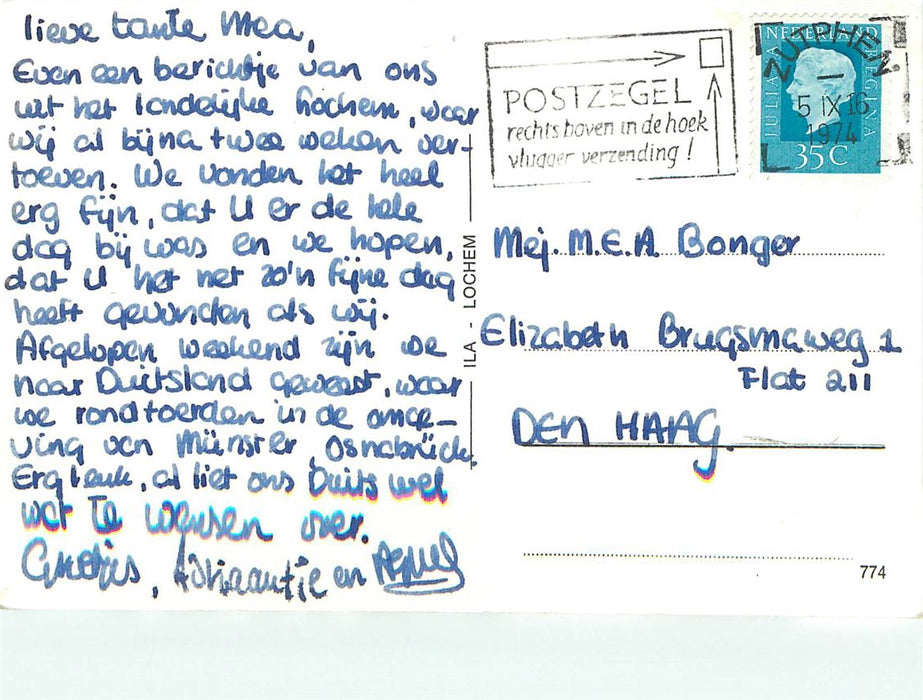 lieve tante Mea,
Even een berichtje van ons
uit het landelijke Lochem, waar
wij al bijna twee weken ver-
toeven. We vonden het heel
erg fijn, dat U er de hele
dag bij was en we hopen,
dat U het net zo'n fijne dag
heeft gevonden als wij.
Afgelopen weekend zijn we
naar Duitsland geweest, waar
we rondtoerden in de omge-
ving van Münster, Osnabrück.
Erg leuk, al liet ons Duits wel
wat te wensen over.
Groetjes, Adriaantje en
ILA - LOCHEM
POSTZEGEL
rechts boven in de hoek
vlugger verzending!
NEDERLAND
JULIANA REGINA
35C
ZUTPHEN
5 IX 16
1974
Mej. M.E.A. Bonger
Elizabeth Brugsmaweg 1
Flat 211
DEN HAAG.
774